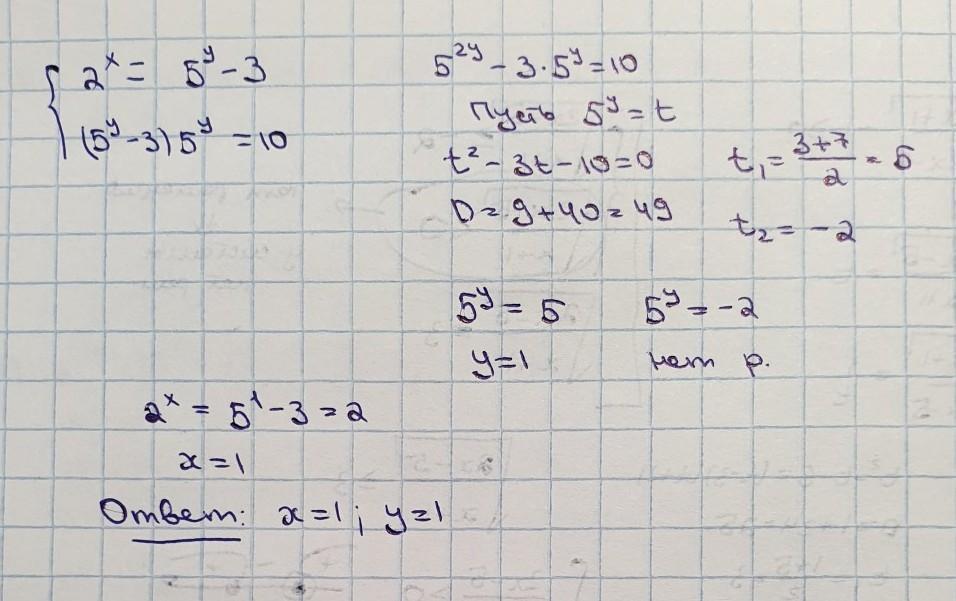 2ˣ = 5ʸ - 3
(5ʸ - 3) 5ʸ = 10
5²ʸ - 3 · 5ʸ = 10
Пусть 5ʸ = t
t² - 3t - 10 = 0
D = 9 + 40 = 49
t₁ = (3+7)/2 = 5
t₂ = -2
5ʸ = 5
5ʸ = -2
y = 1
нет р.
2ˣ = 5¹ - 3 = 2
x = 1
Ответ: x = 1; y = 1